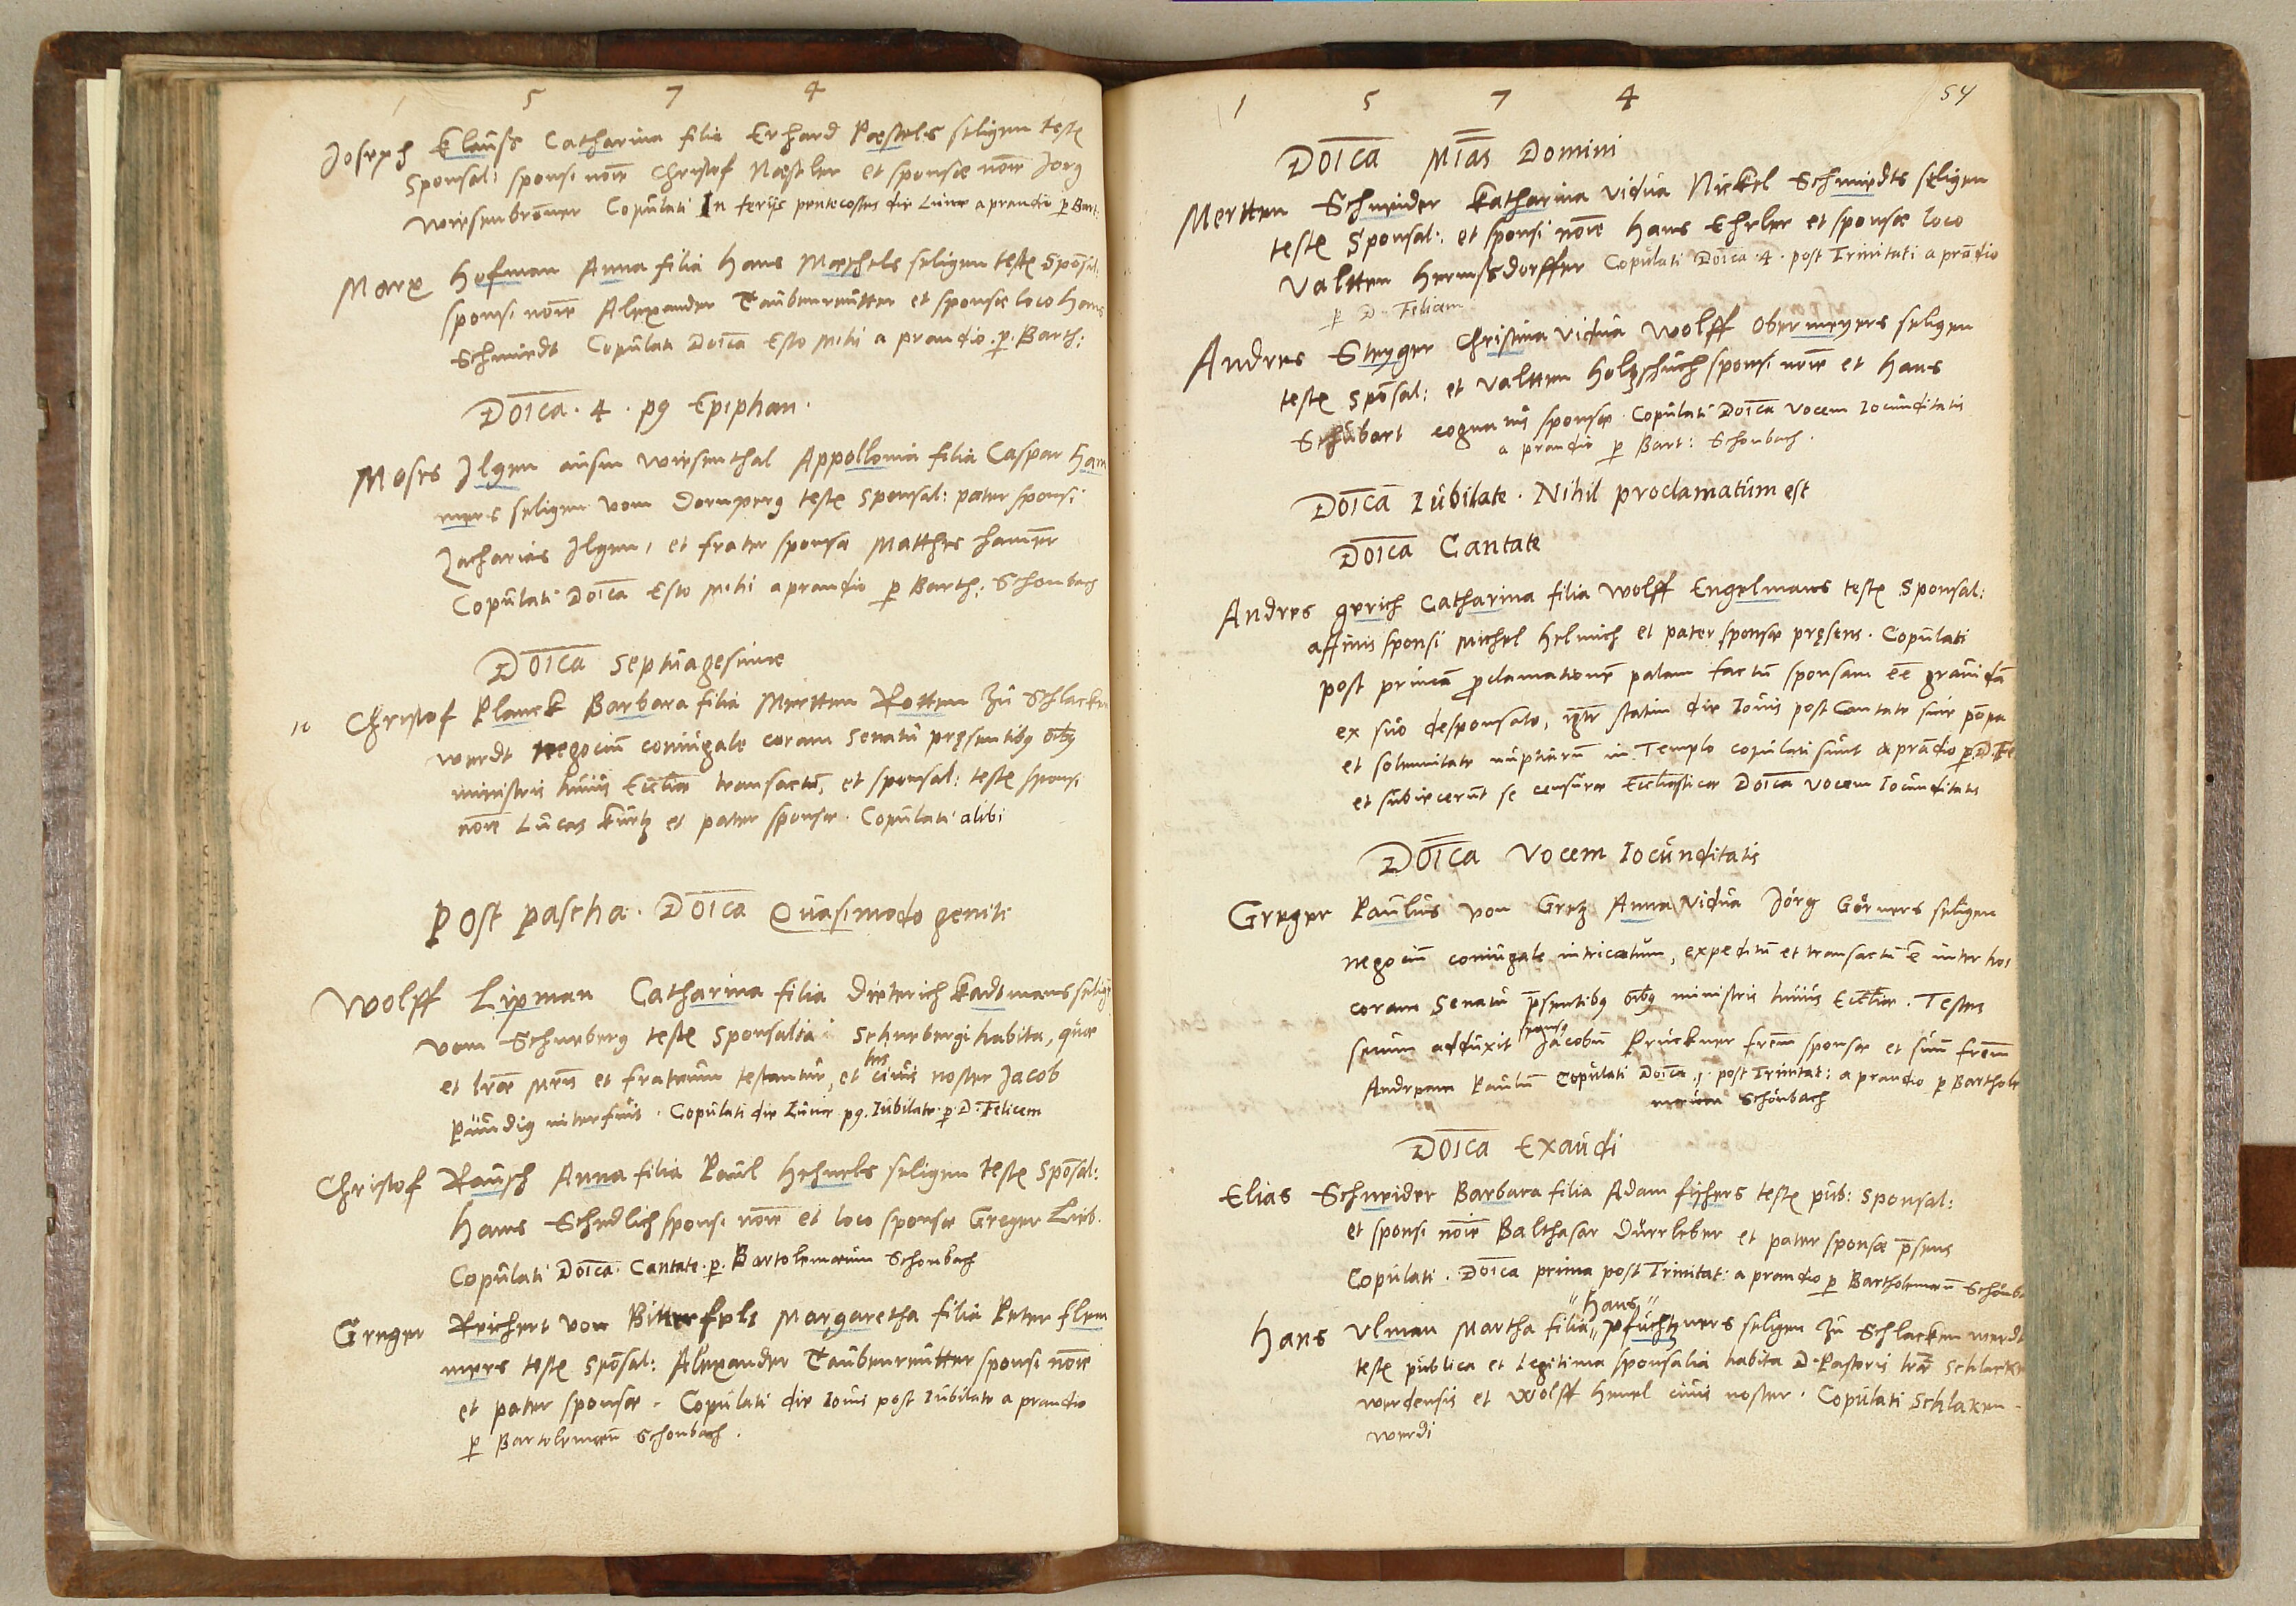 1 5 7 4
Joseph Klauss Catharina filia Erhard Pæstels seligen testes
Sponsal: sponsi noīe Christof Næstler et sponsæ noīe Jorg
Wiesenbroñer Copulati In ferijs pentecostes die Lunæ a prandio p Bart:
Marx Hofman Anna filia Hans Mæchels seligen testes Spōsal:
sponsi noīe Alexander Taubenreutter et sponsæ loco Hans
Schmiedt Copulati Doīca Esto Mihi a prandio p. Barth:
Doīca . 4 . pg Epiphan .
Moses Ilgen ausm Wiesenthal Appollonia filia Caspar Ham
mers seligen vom Dornperg testes Sponsal: pater sponsi
Zacharias Ilgen, et frater sponsæ Matthes Ham̄er
Copulati Doīca Esto Mihi a prandio p Barth: Schonbach
Doīca Septuagesimæ
10 Christof Planck Barbara filia Mertten Rotten zu Schlacken
werdt Negociū coniugale coram Senatu pręsentibg oībg
ministris huius Eccliæ transactū, et sponsal: testes sponsi
noīe Lucas Kurtz et pater sponsæ . Copulati alibi
Post Pascha . Doīca Quasimodo geniti
Wolff Lipman Catharina filia Dieterich Kadtmans selig
vom Schneberg testes Sponsalia Schnebergi habita, quæ
et lræ Mrm̄ et fratrum testantur, et civis noster Jacob
Pündig interfuit . Copulati die Lunæ pg. Iubilate p. D. Felicem
Christof Rausch Anna filia Paul Hehnels seligen testes Spōsal:
Hans Schedlich sponsi noīe et loco sponsæ Greger Lieb .
Copulati Doīca . Cantate . p. Bartolemæum Schonbach
Greger Reichert von Bitterfels Margaretha filia Peter Flem
mers testes Spōsal: Alexander Taubenreutter sponsi noīe
et pater sponsæ . Copulati die Iovis post Iubilate a prandio
p Bartolemæū Schonbach .
1 5 7 4 54
Doīca Mīas Domini
Mertten Schneider Katharina vidua Nickel Schmiedts seligen
testes Sponsal: et sponsi noīe Hans Ehrler et sponsæ loco
Valtten Hermssdorffer Copulati Doīca . 4 . post Trinitati a prādio
p D. Felicem
Andres Steyger Christina vidua Wolff Obermeyers seligen
testes Spōsal: et Valtten Holtzschuch sponsi noīe et Hans
Schubart cognatus sponsæ . Copulati Doīca Vocem Iocunditatis
a prandio p Bart: Schonbach .
Doīca Iubilate . Nihil proclamatum est
Doīca Cantate
Andres Gerich Catharina filia Wolff Engelmans testes Sponsal:
affinis sponsi Michel Helmich et pater sponsæ pręsens . Copulati
post primā proclamationē palam factū sponsam eē gravidā
ex suo desponsato, statim die Iovis post Cantate sine pōpa
et solemnitate nuptiarū in Templo copulati sunt a prādio p. D. Fe
et subiecerunt se censuræ Ecclesiasticæ Doīca Vocem Iocunditatis
Doīca Vocem Iocunditatis
Greger Paulus von Gretz Anna vidua Jörg Görners seligen
negociū coniugale intricatum, expeditū et transactū ē inter hos
coram Senatu p̄sentibg oībg ministris huius Eccliæ . Testes
secum adduxit Jacobū Pruckner frem̄ sponsæ et suū frem̄
Andream Paulū Copulati Doīca . 1 . post Trinitat: a prandio p Bartholo
mæum Schönbach
Doīca Exaudi
Elias Schneider Barbara filia Adam fischers testes pub: Sponsal:
et sponsi noīe Balthasar Dürrleber et pater sponsæ p̄sens
Copulati . Doīca prima post Trinitat: a prandio p Bartholomæū Schönba
Hans Ulman Martha filia "Hans" Pfuchtzners seligen zu Schlackenwerdt
testes publica et legitima sponsalia habita D. Pastoris lræ Schlacke
werdensis et Wolff Henel civis noster . Copulati Schlaken-
werdi